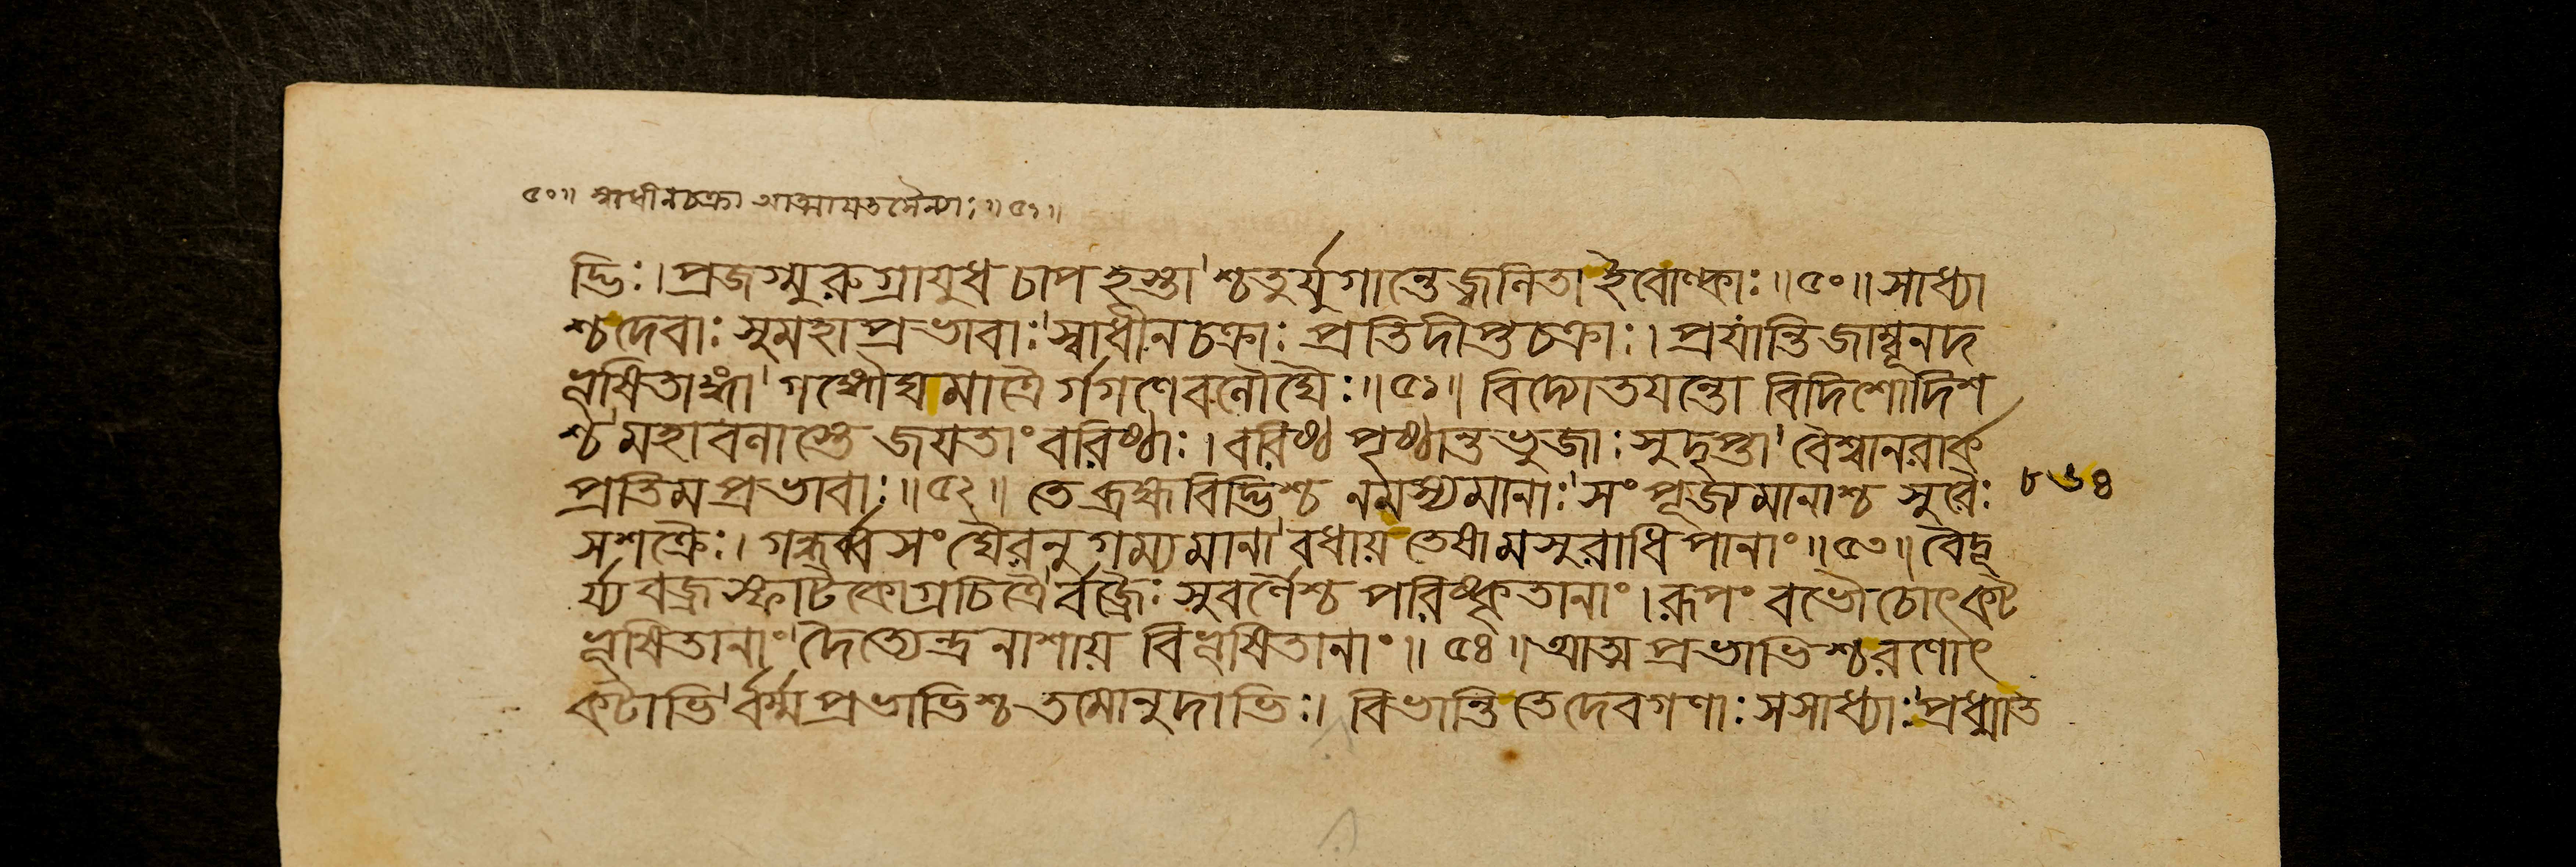 ৫০॥ স্বাধীনচক্রা আত্মায়তসৈন্যাঃ॥৫১॥
দ্ভিঃ।প্রজগ্মুরুগ্রাযুধচাপহস্তা'শ্চতুর্যুগান্তেজ্বনিতা ইবোল্কাঃ॥৫০॥সাধ্যা
শ্চদেবাঃ সুমহাপ্রভাবাঃ'স্বাধীনচক্রাঃ প্রতিদীপ্তচক্রাঃ।প্রযান্তিজাম্বূনদ
ভূষিতাঙ্গা' গন্ধৌঘমাত্রৈ র্গগণেবনৌঘৈঃ॥৫১॥ বিদ্যোতযন্তো বিদিশোদিশ
শ্চ'মহাবনাস্তে জযতাং বরিষ্ঠাঃ।বরিষ্ঠ পৃষ্ঠান্তভুজাঃ সুদৃপ্তা' বৈশ্বানরার্ক
প্রতিমপ্রভাবাঃ॥৫২॥ তে ব্রহ্মবিদ্ভিশ্চ নমস্যমানাঃ'সং পূজ্যমানাশ্চ সুরৈঃ
৮৬৪
সশক্রৈঃ।গন্ধর্ব্বসংঘৈরনুগম্যমানা'বধায় তেষামসুরাধিপানাং॥৫৩॥বৈদূ
র্য্যবজ্রস্ফাটিকোগ্রচিত্রৈ'র্বজ্রৈঃ সুবর্ণৈশ্চ পরিষ্কৃতানাং।রূপং বভৌচোৎকট
ভূষিতানাং'দৈত্যেন্দ্রনাশায় বিভূষিতানাং॥৫৪॥আত্মপ্রভাভিশ্চরণোৎ
কটাভি'র্বর্ম্মপ্রভাভিশ্চতমোনুদাভিঃ। বিভান্তি তেদেবগণাঃ সসাধ্যাঃ'প্রধ্মাত